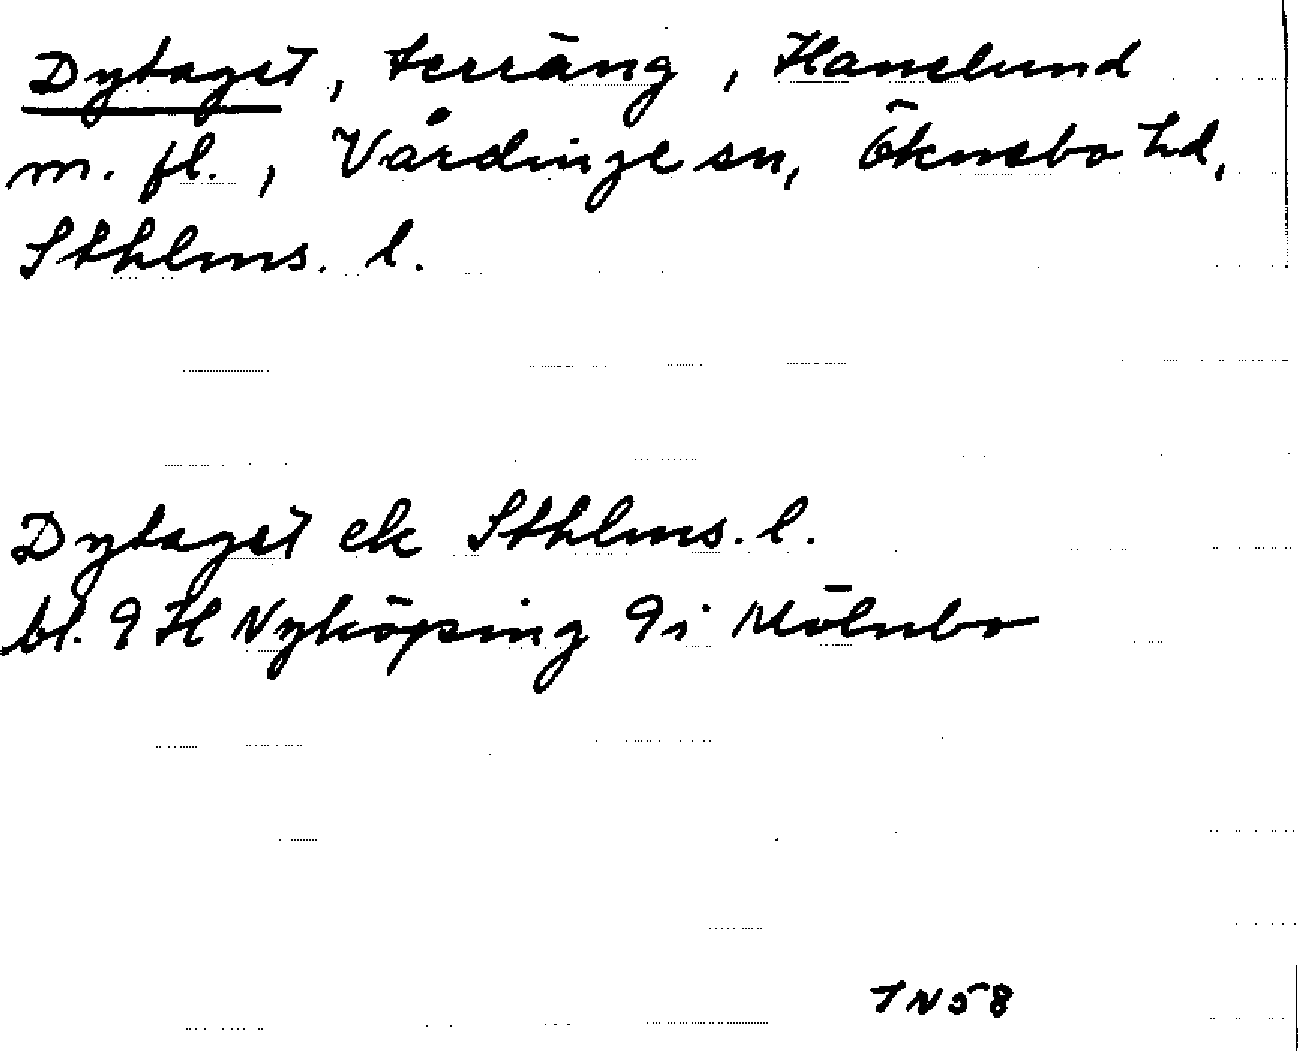 Dytaget, terräng, Hanslund
m. fl., Vårdinge sn, Öknebo hd,
Sthlms. l.
Dytaget ek Sthlms. l.
bl. 9 H Nyköping 9i Mölnbo
TN58